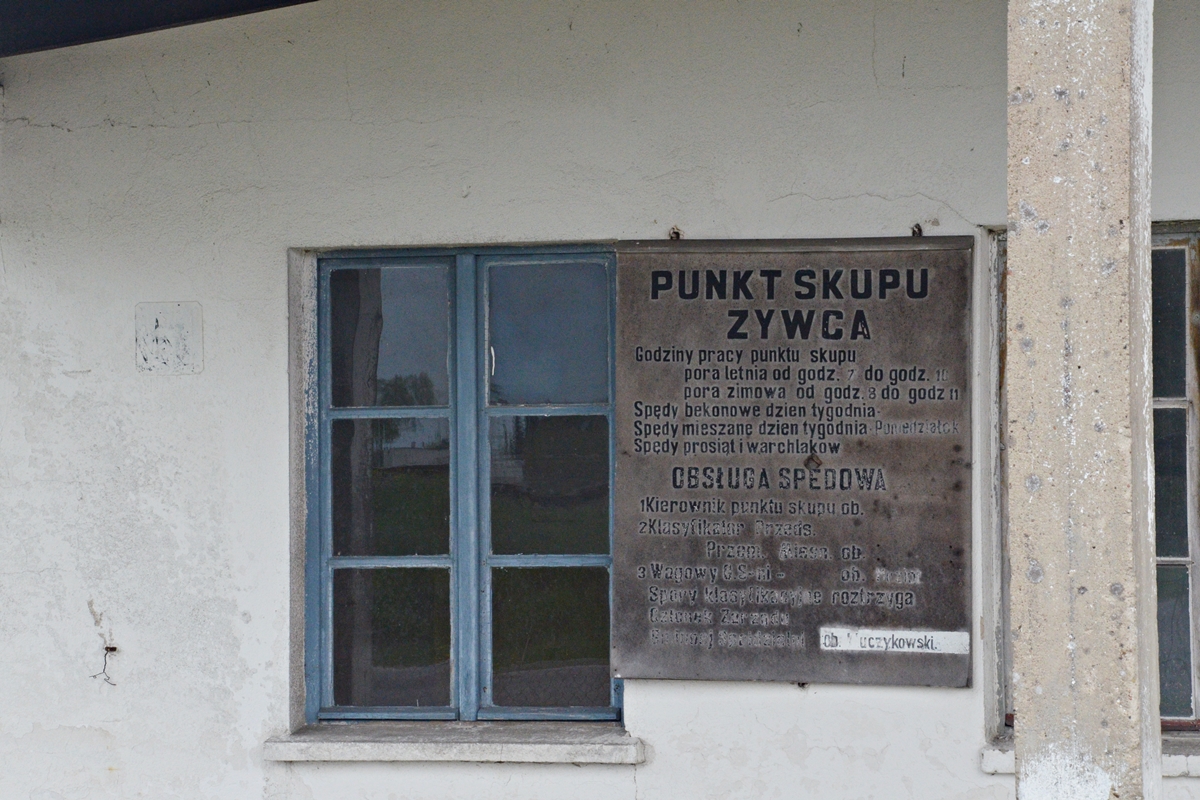 PUNKT SKUPU
ZYWCA
Godziny pracy punktu skupu
pora letnia od godz. 7 do godz. 10
pora zimowa od godz. 8 do godz 11
Spędy bekonowe dzien tygodnia
Spędy mieszane dzien tygodnia Poniedziałek
Spędy prosiąt i warchlaków
OBSŁUGA SPĘDOWA
1 Kierownik punktu skupu ob.
2 Klasyfikator Przeds.
Przem. Mięsn. ob.
3 Wagowy G.S-ni - ob.
Spory klasyfikacyjne roztrzyga
Członek Zarządu
ob.